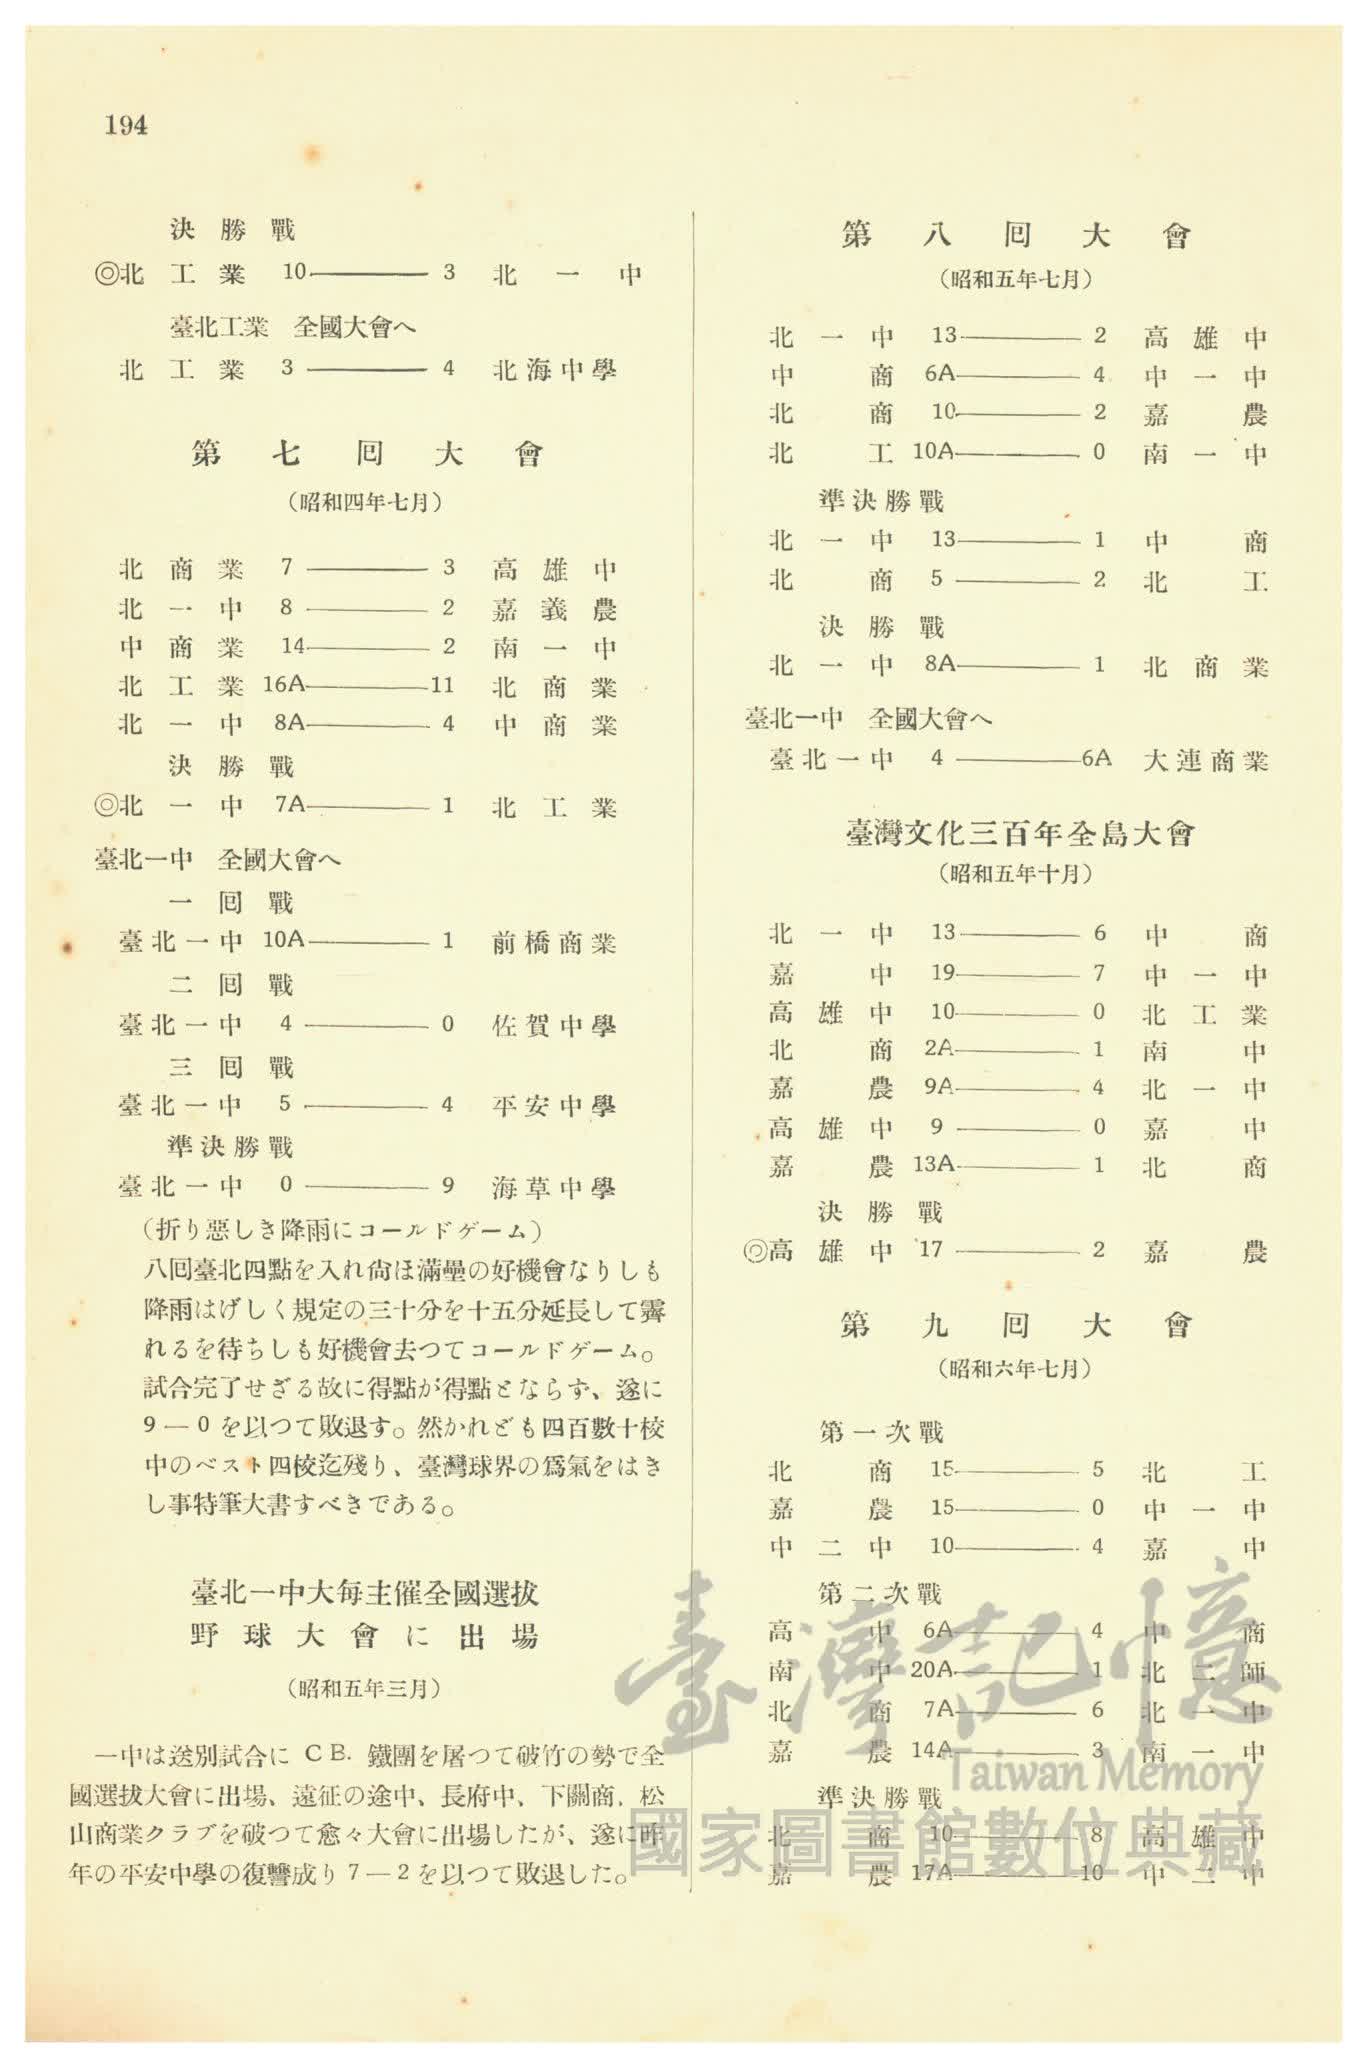 194
決勝戰
◎北工業 10——3 北一中
臺北工業 全國大會へ
北工業 3——4 北海中學
第七囘大會
（昭和四年七月）
北商業 7——3 高雄中
北一中 8——2 嘉義農
中商業 14——2 南一中
北工業 16A——11 北商業
北一中 8A——4 中商業
決勝戰
◎北一中 7A——1 北工業
臺北一中 全國大會へ
一囘戰
臺北一中 10A——1 前橋商業
二囘戰
臺北一中 4——0 佐賀中學
三囘戰
臺北一中 5——4 平安中學
準決勝戰
臺北一中 0——9 海草中學
（折り惡しき降雨にコールドゲーム）
八囘臺北四點を入れ尙ほ滿壘の好機會なりしも
降雨はげしく規定の三十分を十五分延長して霽
れるを待ちしも好機會去つてコールドゲーム。
試合完了せざる故に得點が得點とならず、遂に
9—0を以つて敗退す。然かれども四百數十校
中のベスト四校迄殘り、臺灣球界の爲氣をはき
し事特筆大書すべきである。
臺北一中大每主催全國選拔
野球大會に出場
（昭和五年三月）
一中は送別試合に CB. 鐵團を屠つて破竹の勢で全
國選拔大會に出場、遠征の途中、長府中、下關商、松
山商業クラブを破つて愈々大會に出場したが、遂に昨
年の平安中學の復讐成り7—2を以つて敗退した。
第八囘大會
（昭和五年七月）
北一中 13——2 高雄中
中商 6A——4 中一中
北商 10——2 嘉農
北工 10A——0 南一中
準決勝戰
北一中 13——1 中商
北商 5——2 北工
決勝戰
北一中 8A——1 北商業
臺北一中 全國大會へ
臺北一中 4——6A 大連商業
臺灣文化三百年全島大會
（昭和五年十月）
北一中 13——6 中商
嘉中 19——7 中一中
高雄中 10——0 北工業
北商 2A——1 南中
嘉農 9A——4 北一中
高雄中 9——0 嘉中
嘉農 13A——1 北商
決勝戰
◎高雄中 17——2 嘉農
第九囘大會
（昭和六年七月）
第一次戰
北商 15——5 北工
嘉農 15——0 中一中
中二中 10——4 嘉中
第二次戰
高中 6A——4 中商
南中 20A——1 北二師
北商 7A——6 北一中
嘉農 14A——3 南一中
準決勝戰
北商 10——8 高雄中
嘉農 17A——10 中二中
臺灣記憶
Taiwan Memory
國家圖書館數位典藏